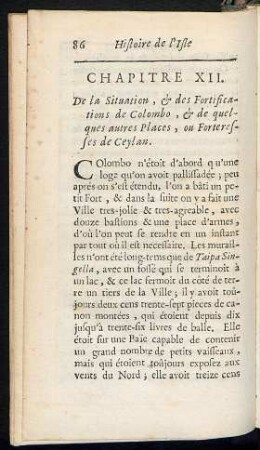 86 Histoire de l'Isle
CHAPITRE XII.
De la Situation, & des Fortifica-
tions de Colombo, & de quel-
ques autres Places, ou Forteres-
ses de Ceylan.
COlombo n'étoit d'abord qu'une
loge qu'on avoit pallissadée; peu
aprés on s'est étendu, l'on a bâti un pe-
tit Fort, & dans la suite on y a fait une
Ville tres-jolie & tres-agreable, avec
douze bastions & une place d'armes,
d'où l'on peut se rendre en un instant
par tout où il est necessaire. Les murail-
les n'ont été long-tems que de Taipa Sin-
gella, avec un fossé qui se terminoit à
un lac, & ce lac fermoit du côté de ter-
re un tiers de la Ville; il y avoit toû-
jours deux cens trente-sept pieces de ca-
non montées, qui étoient depuis dix
jusqu'à trente-six livres de balle. Elle
étoit sur une Baïe capable de contenir
un grand nombre de petits vaisseaux,
mais qui étoient toûjours exposez aux
vents du Nord; elle avoit treize cens